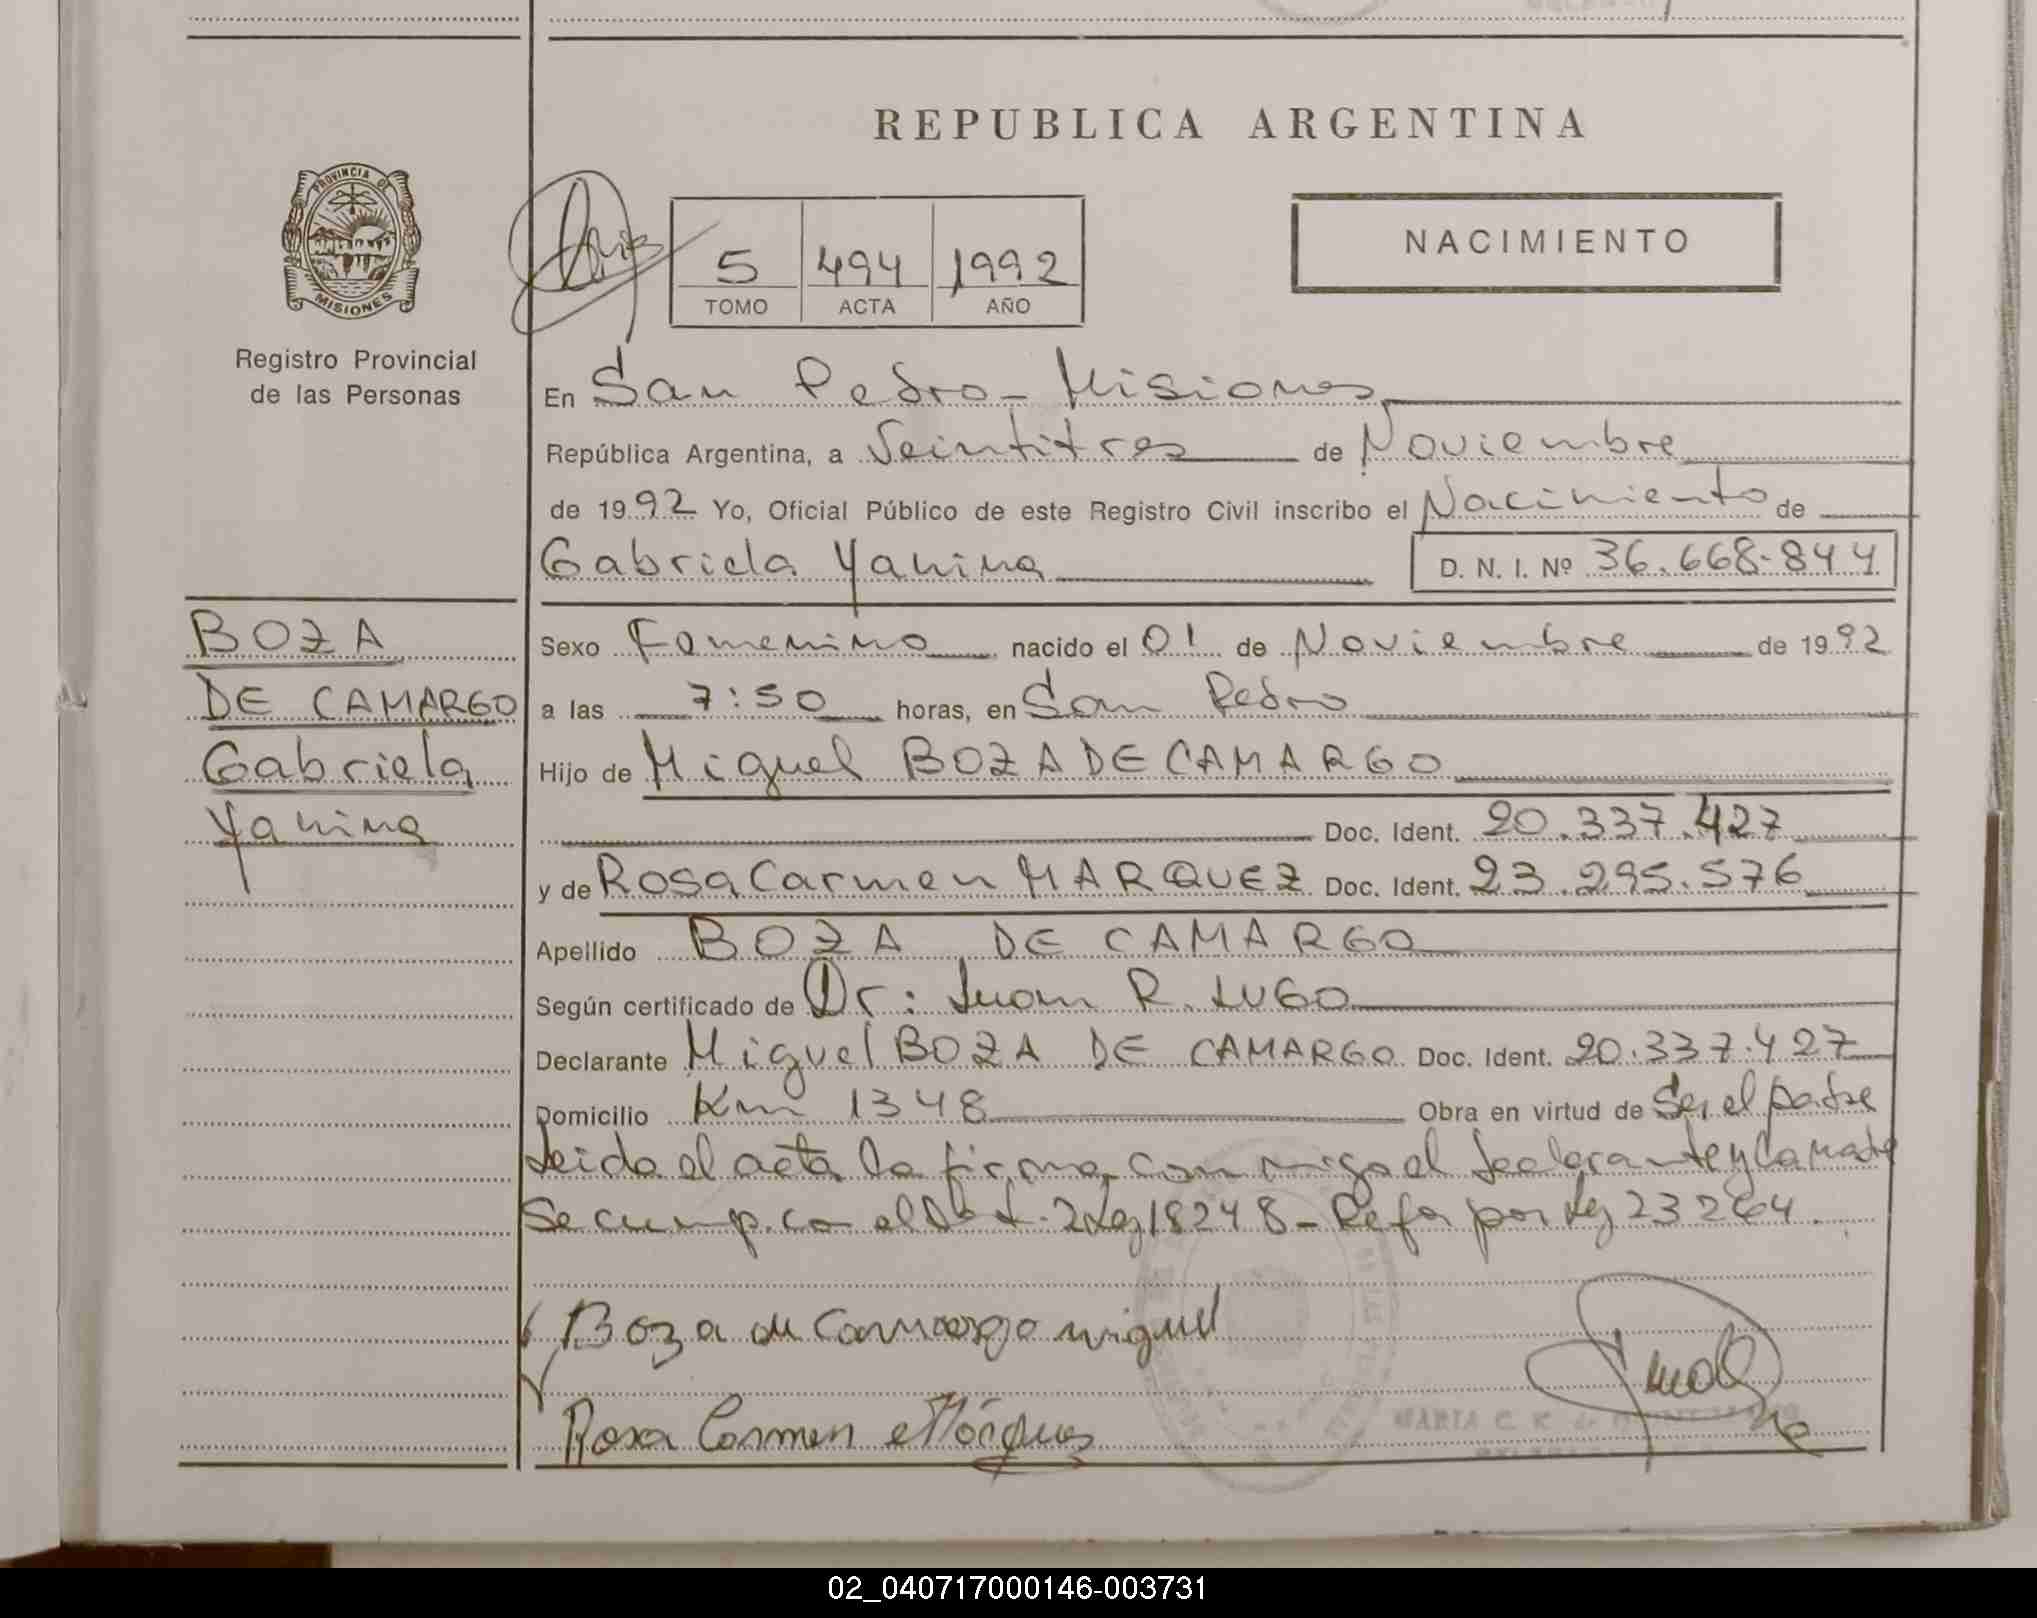 REPUBLICA ARGENTINA
PROVINCIA DE
MISIONES
Registro Provincial
de las Personas
5 494 1992
TOMO ACTA AÑO
NACIMIENTO
En San Pedro - Misiones
República Argentina, a Veintitres de Noviembre
de 1992 Yo, Oficial Público de este Registro Civil inscribo el Nacimiento de
Gabriela Yanina D. N. I. Nº 36.668.844
BOZA
DE CAMARGO
Gabriela
Yanina
Sexo Femenino nacido el 01 de Noviembre de 1992
a las 7:50 horas, en San Pedro
Hijo de Miguel BOZA DE CAMARGO
Doc. Ident. 20.337.427
y de Rosa Carmen MARQUEZ Doc. Ident. 23.295.576
Apellido BOZA DE CAMARGO
Según certificado de Dr: Juan R. LUGO
Declarante Miguel BOZA DE CAMARGO Doc. Ident. 20.337.427
Domicilio Km 1348 Obra en virtud de Ser el padre
Leida el acta la firma conmigo el declarante y la madre
Se cump. con el 2 Ley 18248 - Refor por Ley 23264.
Boza de Camargo miguel
Rosa Carmen Márquez
MARIA C. R. de
02_040717000146-003731